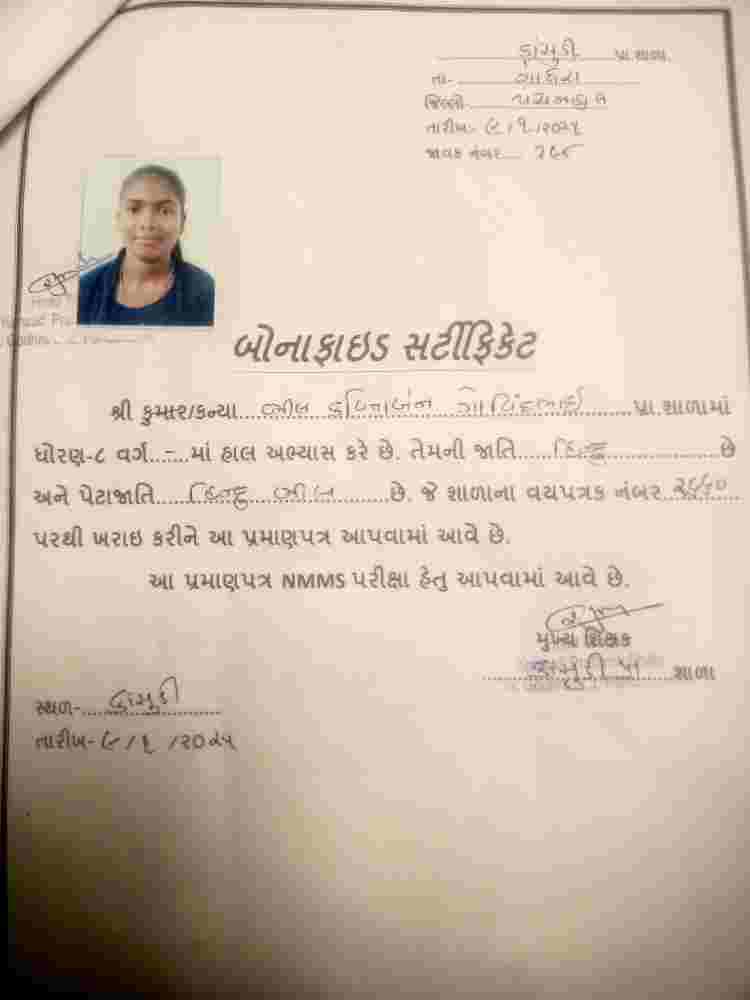 ફાંસુડી પ્રા.શાળા.
તા- ગોધરા
જિલ્લો- પંચમહાલ
તારીખ:- ૯/૧/૨૦૨૫
જાવક નંબર....
બોનાફાઇડ સર્ટીફિકેટ
શ્રી કુમાર/કન્યા ભીલ કવિતાબેન ગોવિંદભાઈ પ્રા.શાળામાં
ધોરણ-૮ વર્ગ...-...માં હાલ અભ્યાસ કરે છે. તેમની જાતિ.....હિન્દુ..........છે
અને પેટાજાતિ.....હિન્દુ ભીલ........છે. જે શાળાના વયપત્રક નંબર
પરથી ખરાઇ કરીને આ પ્રમાણપત્ર આપવામાં આવે છે.
આ પ્રમાણપત્ર NMMS પરીક્ષા હેતુ આપવામાં આવે છે.
મુખ્ય શિક્ષક
ફાંસુડી પ્રા શાળા
સ્થળ-....ફાંસુડી
તારીખ- ૯/૧/૨૦૨૫